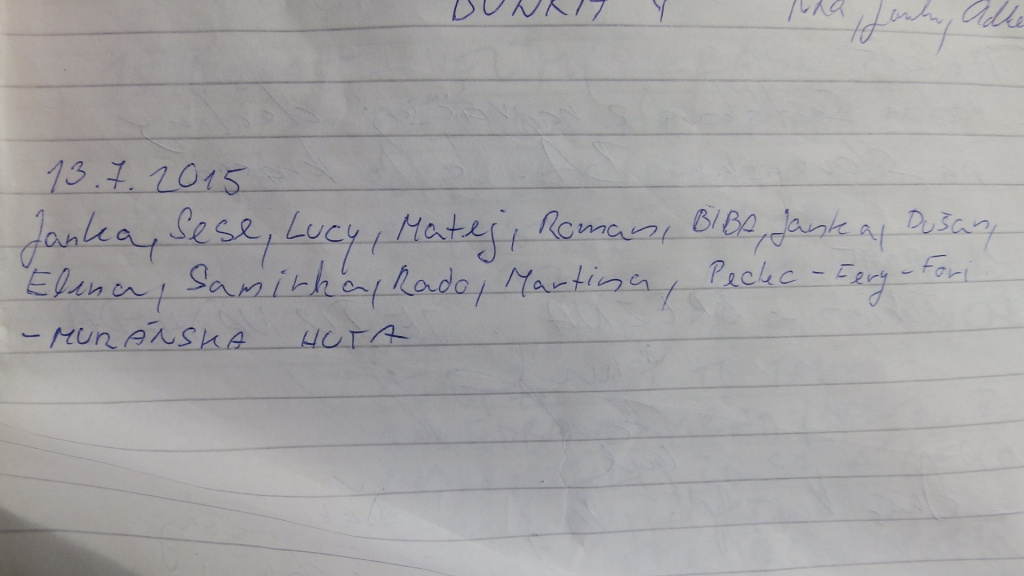 BUNKA 4
13.7.2015
Janka, Sese, Lucy, Matej, Roman, BIBA, Janka, Dušan,
Elena, Samirka, Rado, Martina, - Fery - Fori
- MURÁŇSKA HUTA